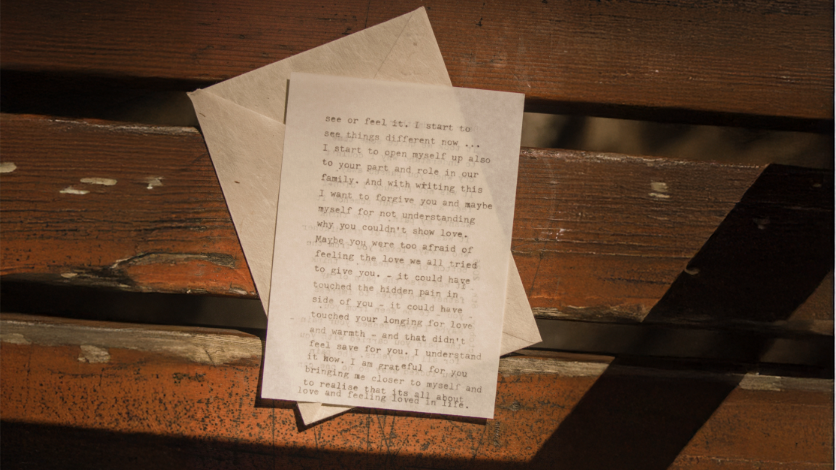 see or feel it. I start to
see things different now ...
I start to open myself up also
to your part and role in our
family. And with writing this
I want to forgive you and maybe
myself for not understanding
why you couldn't show love.
Maybe you were too afraid of
feeling the love we all tried
to give you. - it could have
touched the hidden pain in
side of you - it could have
touched your longing for love
and warmth - and that didn't
feel save for you. I understand
it now. I am grateful for you
bringing me closer to myself and
to realise that its all about
love and feeling loved in life.